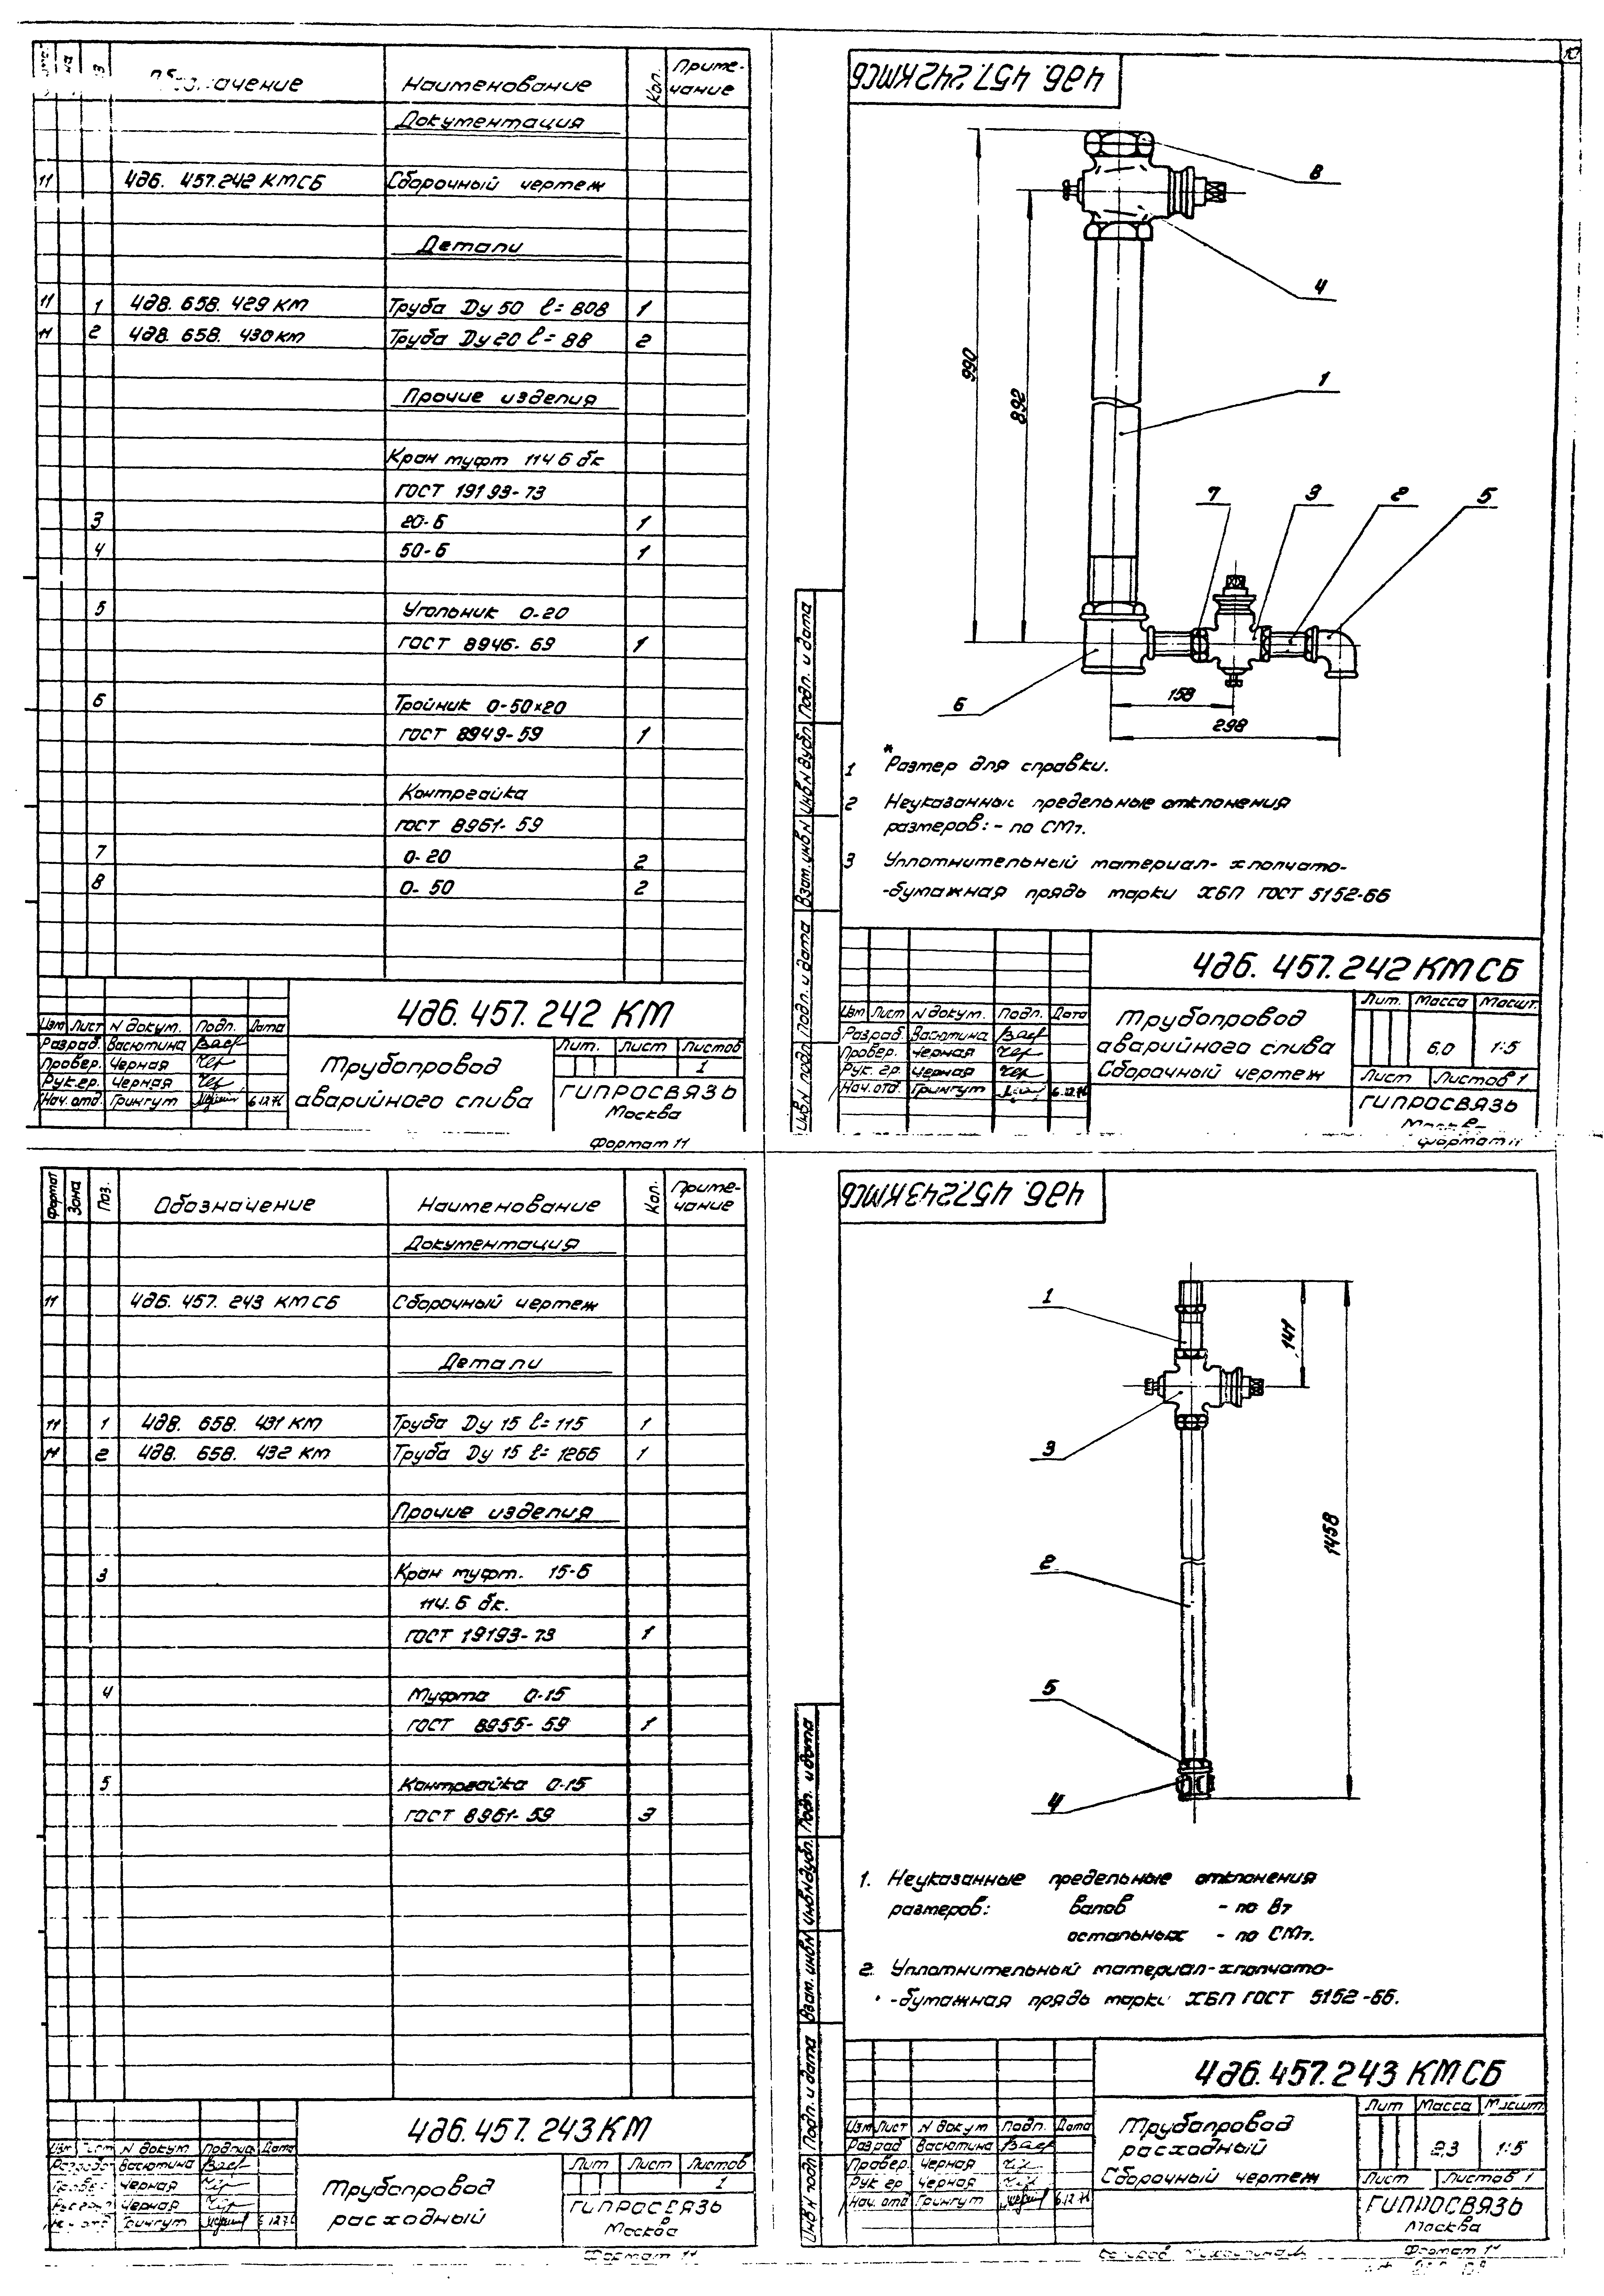 Обозначение Наименование Кол. Приме-
чание
Документация
11 4д6. 457.242 КМ СБ Сборочный чертеж
Детали
11 1 4д8. 658. 429 КМ Труба Ду 50 ℓ= 808 1
11 2 4д8. 658. 430 КМ Труба Ду 20 ℓ= 88 2
Прочие изделия
Кран муфт 11ч 6 бк
ГОСТ 19193-73
3 20-Б 1
4 50-Б 1
5 Угольник О-20
ГОСТ 8946-69 1
6 Тройник О-50х20
ГОСТ 8949-59 1
Контргайка
ГОСТ 8961-59
7 О-20 2
8 О-50 2
4д6. 457. 242 КМ
Изм Лист N докум. Подп. Дата
Разраб. Васютина
Провер. Черная
Рук.гр. Черная
Нач.отд. Грингут 6.12.76
Трубопровод
аварийного слива
Лит. Лист Листов
1
ГИПРОСВЯЗЬ
Москва
Формат 11
10
4д6. 457.242 КМ СБ
8
4
1
990
892
7 3 2 5
6
158
298
1 *Размер для справки.
2 Неуказанные предельные отклонения
размеров: - по СМ7.
3 Уплотнительный материал- хлопчато-
-бумажная прядь марки ХБП ГОСТ 5152-66
Инв.N подл. Подп. и дата Взам.инв.N Инв.N дубл. Подп. и дата
4д6. 457. 242 КМ СБ
Изм Лист N докум. Подп. Дата
Разраб. Васютина
Провер. Черная
Рук. гр. Черная
Нач.отд. Грингут 6.12.76
Трубопровод
аварийного слива
Сборочный чертеж
Лит. Масса Масшт.
6,0 1:5
Лист Листов 1
ГИПРОСВЯЗЬ
Москва
Формат 11
Формат Зона Поз. Обозначение Наименование Кол. Приме-
чание
Документация
11 4д6. 457. 243 КМ СБ Сборочный чертеж
Детали
11 1 4д8. 658. 431 КМ Труба Ду 15 ℓ= 115 1
11 2 4д8. 658. 432 КМ Труба Ду 15 ℓ= 1266 1
Прочие изделия
3 Кран муфт. 15-Б
11ч. 6 бк.
ГОСТ 19193-73 1
4 Муфта О-15
ГОСТ 8955-59 1
5 Контргайка О-15
ГОСТ 8961-59 3
4д6. 457. 243 КМ
Изм Лист N докум Подпись Дата
Разраб Васютина
Провер Черная
Рук гр Черная
Нач отд Грингут 6.12.76
Трубопровод
расходный
Лит Лист Листов
1
ГИПРОСВЯЗЬ
Москва
Формат 11
4д6. 457.243 КМ СБ
1
141
3
1458
2
5
4
1. Неуказанные предельные отклонения
размеров: валов - по В7
остальных - по СМ7.
2. Уплотнительный материал-хлопчато-
-бумажная прядь марки ХБП ГОСТ 5152-66.
Инв.N подл Подп. и дата Взам. инв.N Инв.N дубл. Подп. и дата
4д6. 457. 243 КМ СБ
Изм Лист N докум Подп. Дата
Разраб Васютина
Провер. Черная
Рук гр Черная
Нач. отд Грингут 6.12.76
Трубопровод
расходный
Сборочный чертеж
Лит Масса Масшт
2,3 1:5
Лист Листов 1
ГИПРОСВЯЗЬ
Москва
Формат 11